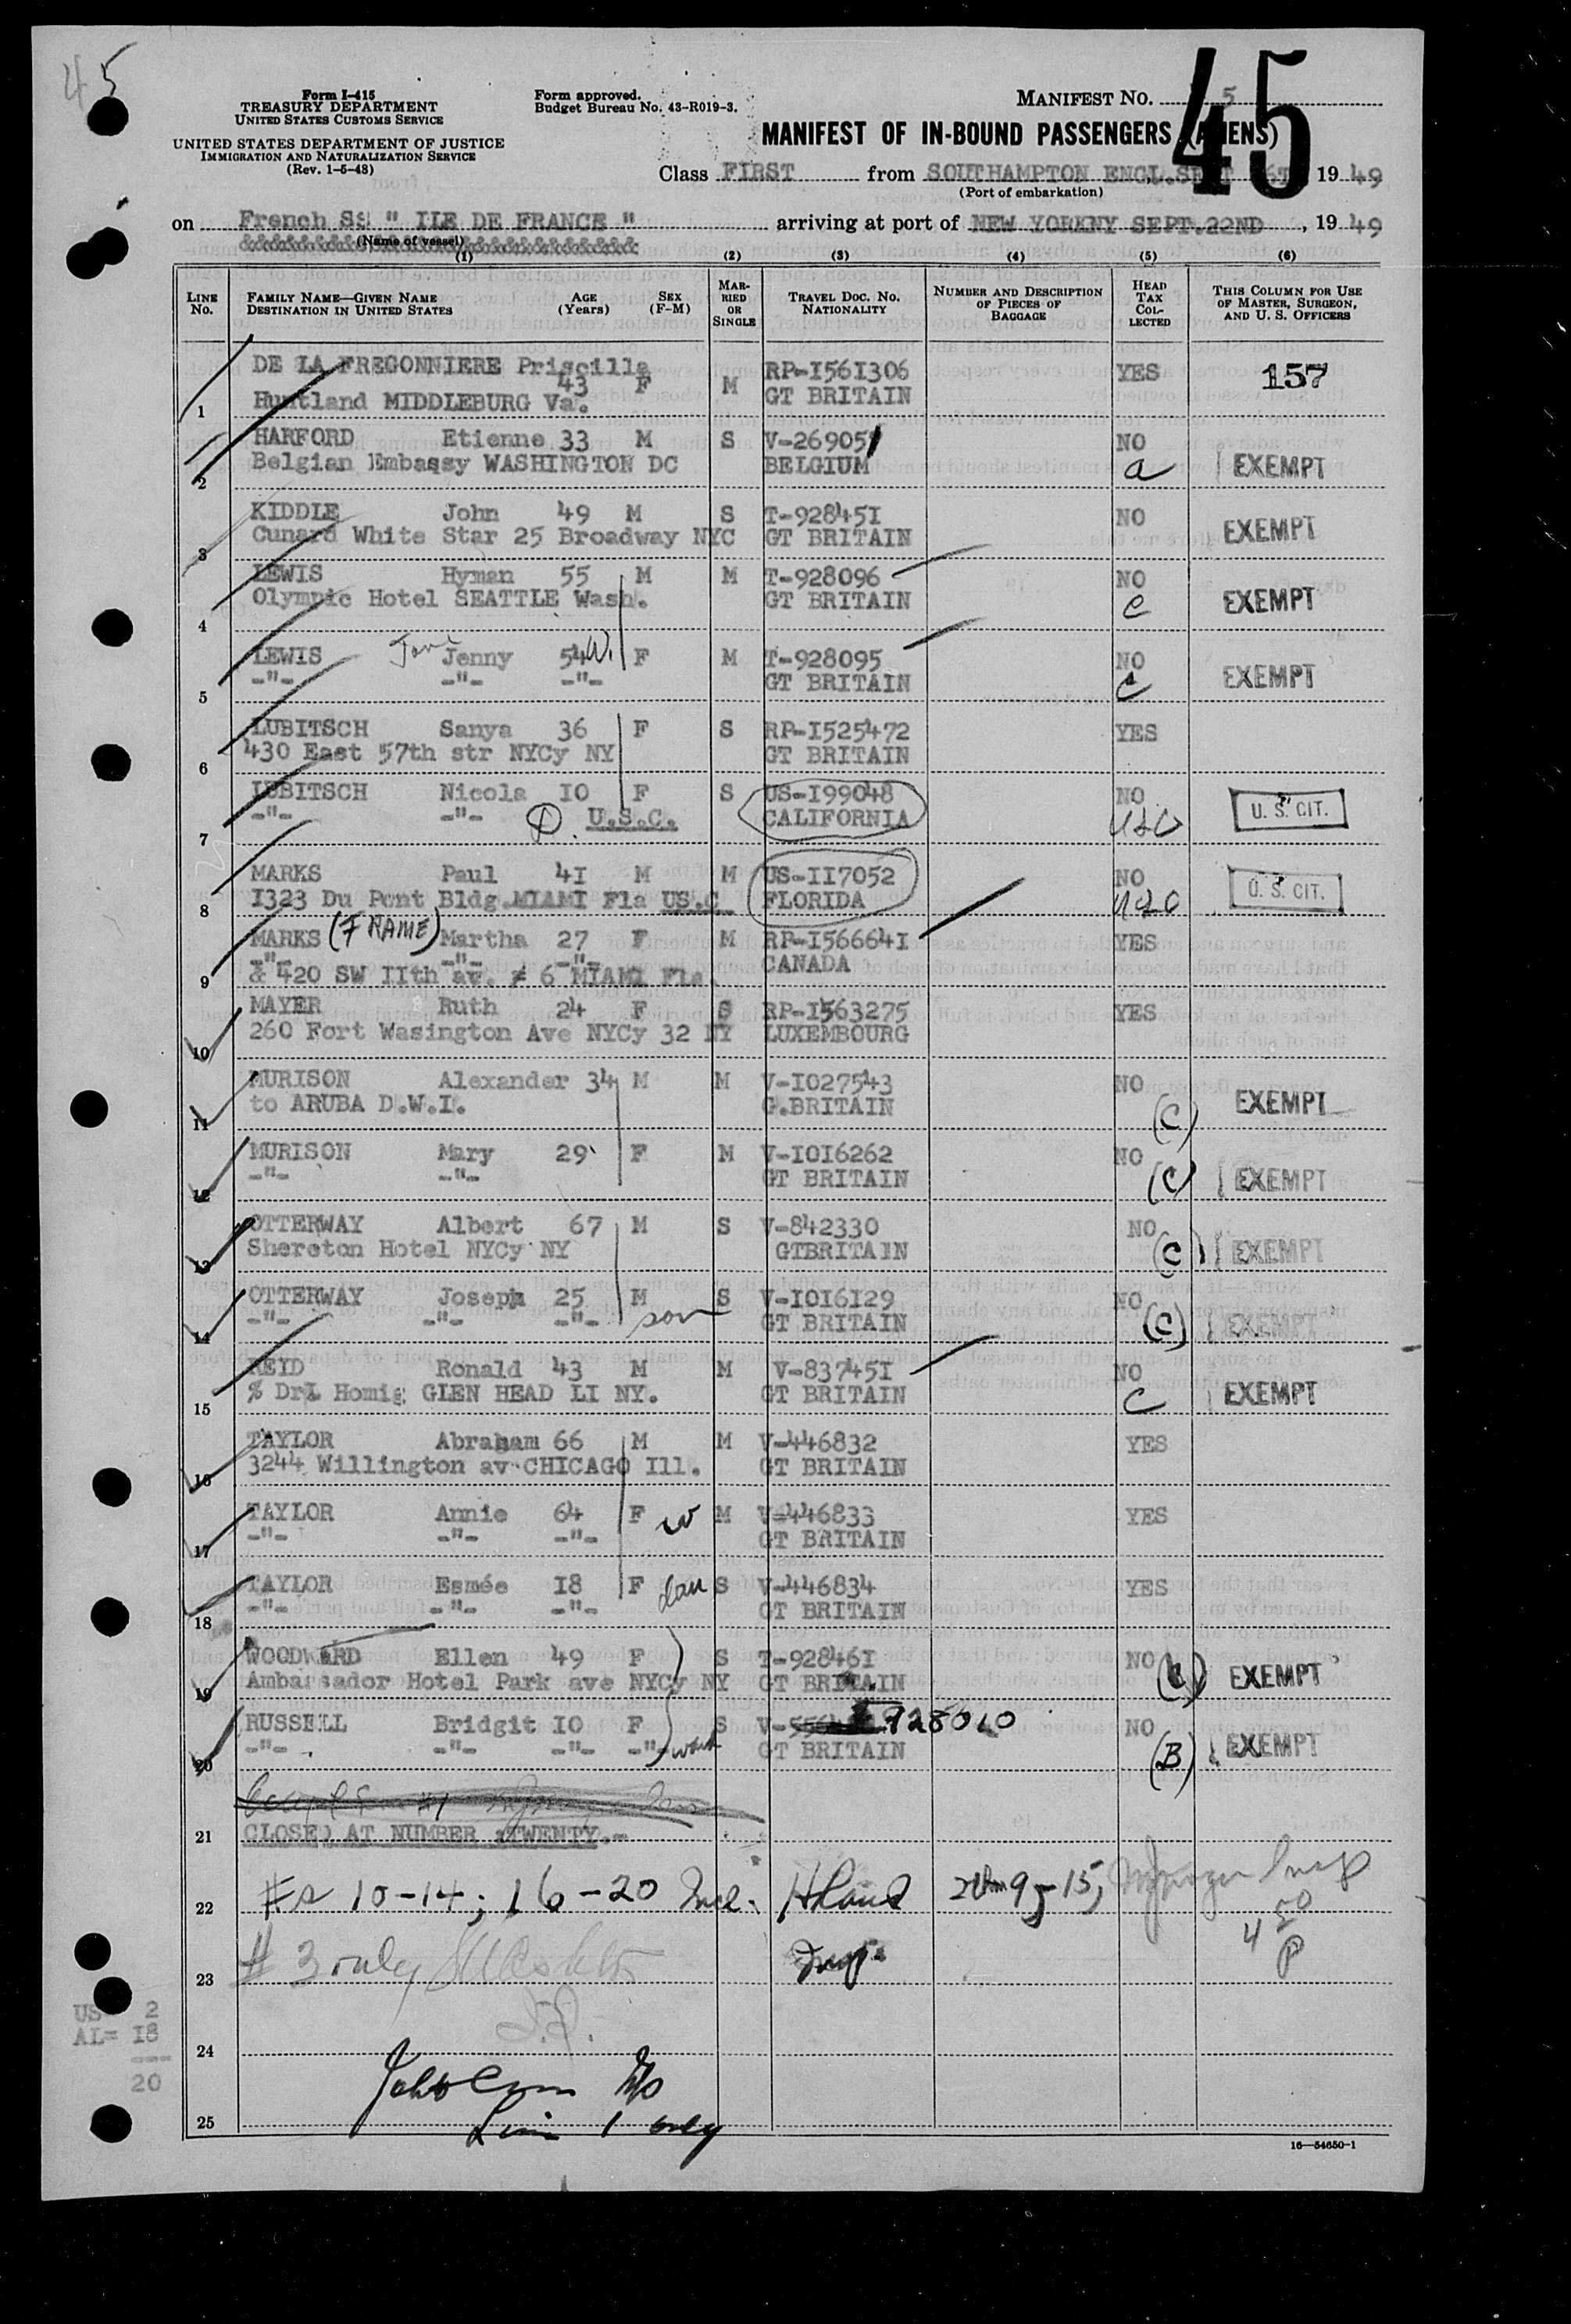 45
Form I-415
TREASURY DEPARTMENT
UNITED STATES CUSTOMS SERVICE
UNITED STATES DEPARTMENT OF JUSTICE
IMMIGRATION AND NATURALIZATION SERVICE
(Rev. 1-5-48)
Form approved.
Budget Bureau No. 43-R019-3.
MANIFEST NO. 5
45
MANIFEST OF IN-BOUND PASSENGERS (ALIENS)
Class FIRST from SOUTHAMPTON ENGL. SEPT 1949
(Port of embarkation)
on French SS " ILE DE FRANCE " arriving at port of NEW YORK NY SEPT.22ND, 1949
(Name of vessel)
(1) (2) (3) (4) (5) (6)
LINE No. FAMILY NAME—GIVEN NAME DESTINATION IN UNITED STATES AGE (Years) SEX (F-M) MARRIED OR SINGLE TRAVEL DOC. NO. NATIONALITY NUMBER AND DESCRIPTION OF PIECES OF BAGGAGE HEAD TAX COLLECTED THIS COLUMN FOR USE OF MASTER, SURGEON, AND U. S. OFFICERS
DE LA FREGONNIERE Priscilla 43 F M RP-I56I306 YES 157
1 Huntland MIDDLEBURG Va. GT BRITAIN
HARFORD Etienne 33 M S V-269051 NO
2 Belgian Embassy WASHINGTON DC BELGIUM a EXEMPT
KIDDLE John 49 M S T-92845I NO
3 Cunard White Star 25 Broadway NYC GT BRITAIN EXEMPT
LEWIS Hyman 55 M M T-928096 NO
4 Olympic Hotel SEATTLE Wash. GT BRITAIN c EXEMPT
LEWIS Jenny 54 W. F M T-928095 NO
5 -"- -"- -"- GT BRITAIN c EXEMPT
LUBITSCH Sanya 36 F S RP-I525472 YES
6 430 East 57th str NYCy NY GT BRITAIN
LUBITSCH Nicola IO F S US-I99048 NO
7 -"- -"- D. U.S.C. CALIFORNIA USC U. S. CIT.
MARKS Paul 4I M M US-II7052 NO
8 I323 Du Pont Bldg.MIAMI Fla US.C FLORIDA USC U. S. CIT.
MARKS (F NAME) Martha 27 F M RP-I56664I YES
-"- -"- -"- CANADA
9 & 420 SW IIth av. # 6 MIAMI Fla.
MAYER Ruth 24 F S RP-I563275 YES
10 260 Fort Wasington Ave NYCy 32 NY LUXEMBOURG
MURISON Alexander 34 M M V-I027543 NO
11 to ARUBA D.W.I. G.BRITAIN (C) EXEMPT
MURISON Mary 29 F M V-I0I6262 NO
12 -"- -"- GT BRITAIN (C) EXEMPT
OTTERWAY Albert 67 M S V-842330 NO
13 Shereton Hotel NYCy NY GTBRITAIN (C) EXEMPT
OTTERWAY Joseph 25 M S V-I0I6I29 NO
14 -"- -"- -"- son GT BRITAIN (C) EXEMPT
REID Ronald 43 M M V-83745I NO
15 % DrL Homig GLEN HEAD LI NY. GT BRITAIN C EXEMPT
TAYLOR Abraham 66 M M V-446832 YES
16 3244 Willington av CHICAGO Ill. GT BRITAIN
TAYLOR Annie 64 F w M V-446833 YES
17 -"- -"- -"- GT BRITAIN
TAYLOR Esmée I8 F dau S V-446834 YES
18 -"- -"- -"- GT BRITAIN
WOODWARD Ellen 49 F S T-92846I NO
19 Ambassador Hotel Park ave NYCy NY GT BRITAIN EXEMPT
RUSSELL Bridgit IO F S V- 928010 NO
20 -"- -"- -"- -"- GT BRITAIN (B) EXEMPT
21 CLOSED AT NUMBER TWENTY.-
22 #s 10-14; 16-20 Incl. 9-15, Insp
23 # 3 only Insp.
450
P
US= 2
AL= I8
20
24
25 Line 1 only
16—54650-1